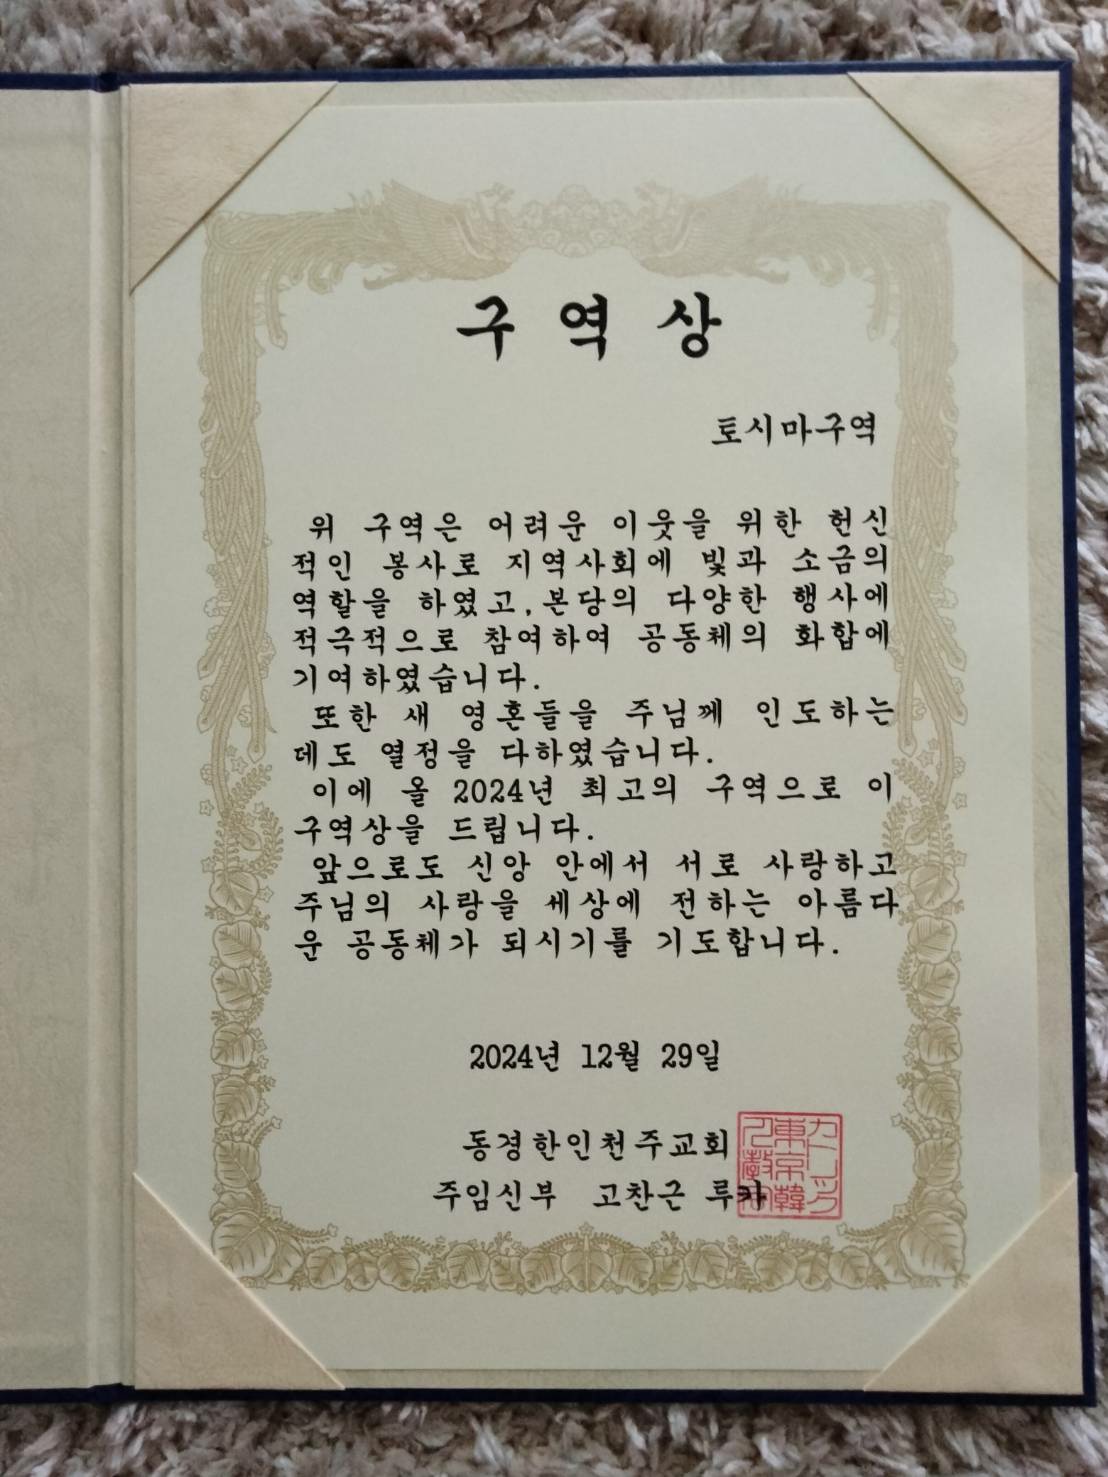 구 역 상
토시마구역
위 구역은 어려운 이웃을 위한 헌신
적인 봉사로 지역사회에 빛과 소금의
역할을 하였고, 본당의 다양한 행사에
적극적으로 참여하여 공동체의 화합에
기여하였습니다.
또한 새 영혼들을 주님께 인도하는
데도 열정을 다하였습니다.
이에 올 2024년 최고의 구역으로 이
구역상을 드립니다.
앞으로도 신앙 안에서 서로 사랑하고
주님의 사랑을 세상에 전하는 아름다
운 공동체가 되시기를 기도합니다.
2024년 12월 29일
동경한인천주교회
주임신부 고찬근 루카
カトリック
東京韓